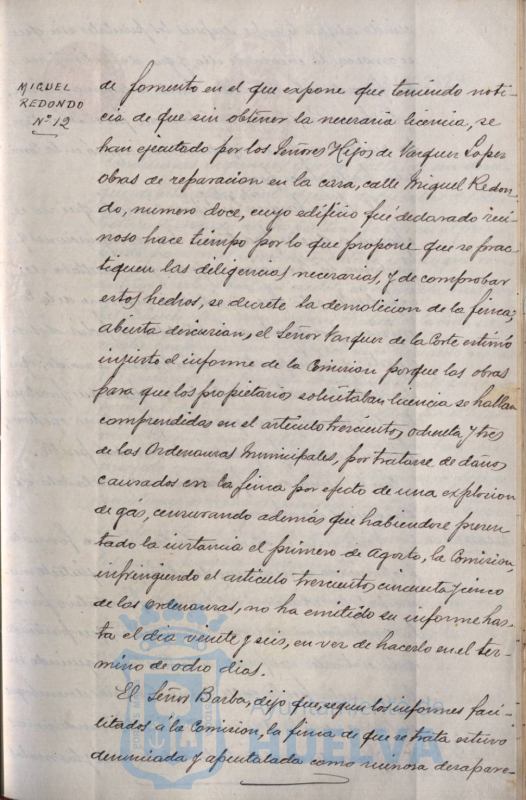 MIGUEL
REDONDO
Nº 12
de fomento en el que expone que teniendo noti-
cia de que sin obtener la necesaria licencia, se
han ejecutado por los Señores Hijos de Vazquez Lopez
obras de reparacion en la casa, calle Miguel Redon
do, numero doce, cuyo edificio fué declarado rui-
noso hace tiempo por lo que propone que se prac-
tiquen las diligencias necesarias, y de comprobar
estos hechos, se decrete la demolicion de la finca;
abierta discusion, el Señor Vazquez de la Corte estimó
injusto el informe de la Comision porque las obras
para que los propietarios solicitaban licencia se hallan
comprendidas en el artículo trescientos ochenta y tres
de las Ordenanzas Municipales, por tratarse de daños
causados en la finca por efecto de una explosion
de gás, censurando además que habiendose presen
tado la instancia el primero de Agosto, la Comision,
infringiendo el artículo trescientos cincuenta y cinco
de las ordenanzas, no ha emitido su informe has-
ta el dia veinte y seis, en vez de hacerlo en el ter-
mino de ocho dias.
El Señor Barba, dijo que, segun los informes faci-
litados á la Comision, la finca de que se trata estuvo
denunciada y apuntalada como ruinosa desapare-
HUELVA